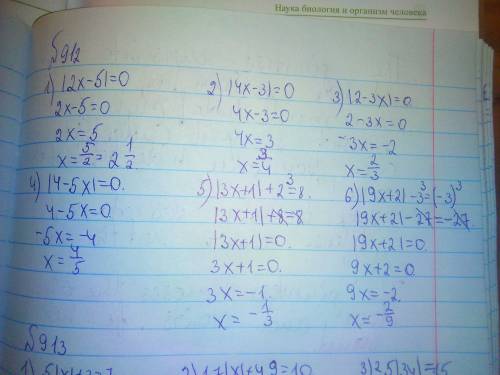 Наука биология и организм человека
№912
1) |2x-5|=0
2x-5=0
2x=5
x=5/2=2 1/2
2) |4x-3|=0
4x-3=0
4x=3
x=3/4
3) |2-3x|=0
2-3x=0
-3x=-2
x=2/3
4) |4-5x|=0.
4-5x=0
-5x=-4
x=4/5
5) |3x+1|+2³=8.
|3x+1|+8=8
|3x+1|=0.
3x+1=0.
3x=-1.
x=-1/3
6) |9x+2|-3³=(-3)³
|9x+2|-27=-27
|9x+2|=0.
9x+2=0.
9x=-2.
x=-2/9
№913
3) 2,5|3y|=15